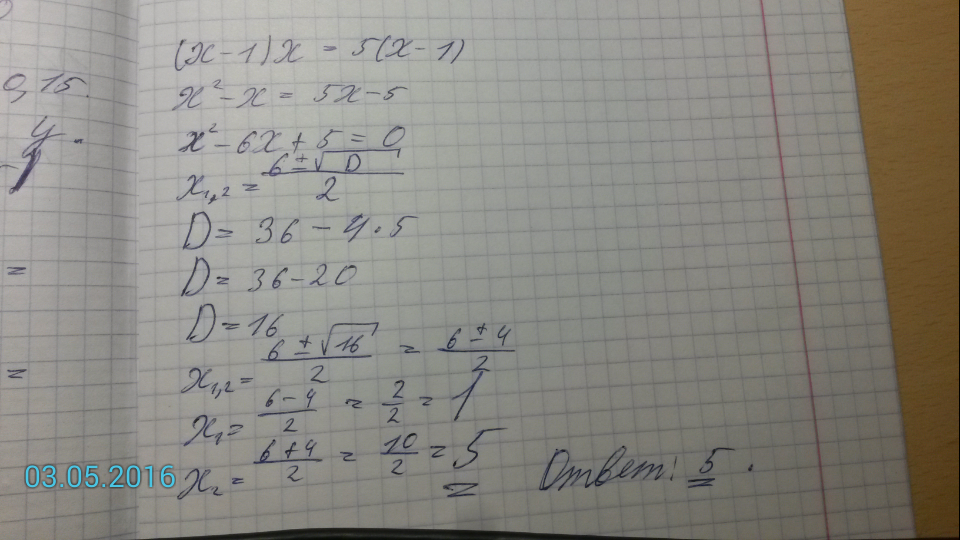 (x-1)x = 5(x-1)
0,15.
x²-x = 5x-5
x²-6x+5=0
y.
x₁,₂ = (6±√D)/2
D = 36-4·5
=
D = 36-20
D = 16
=
x₁,₂ = (6±√16)/2 = (6±4)/2
x₁ = (6-4)/2 = 2/2 = 1
x₂ = (6+4)/2 = 10/2 = 5
Ответ: 5.
03.05.2016